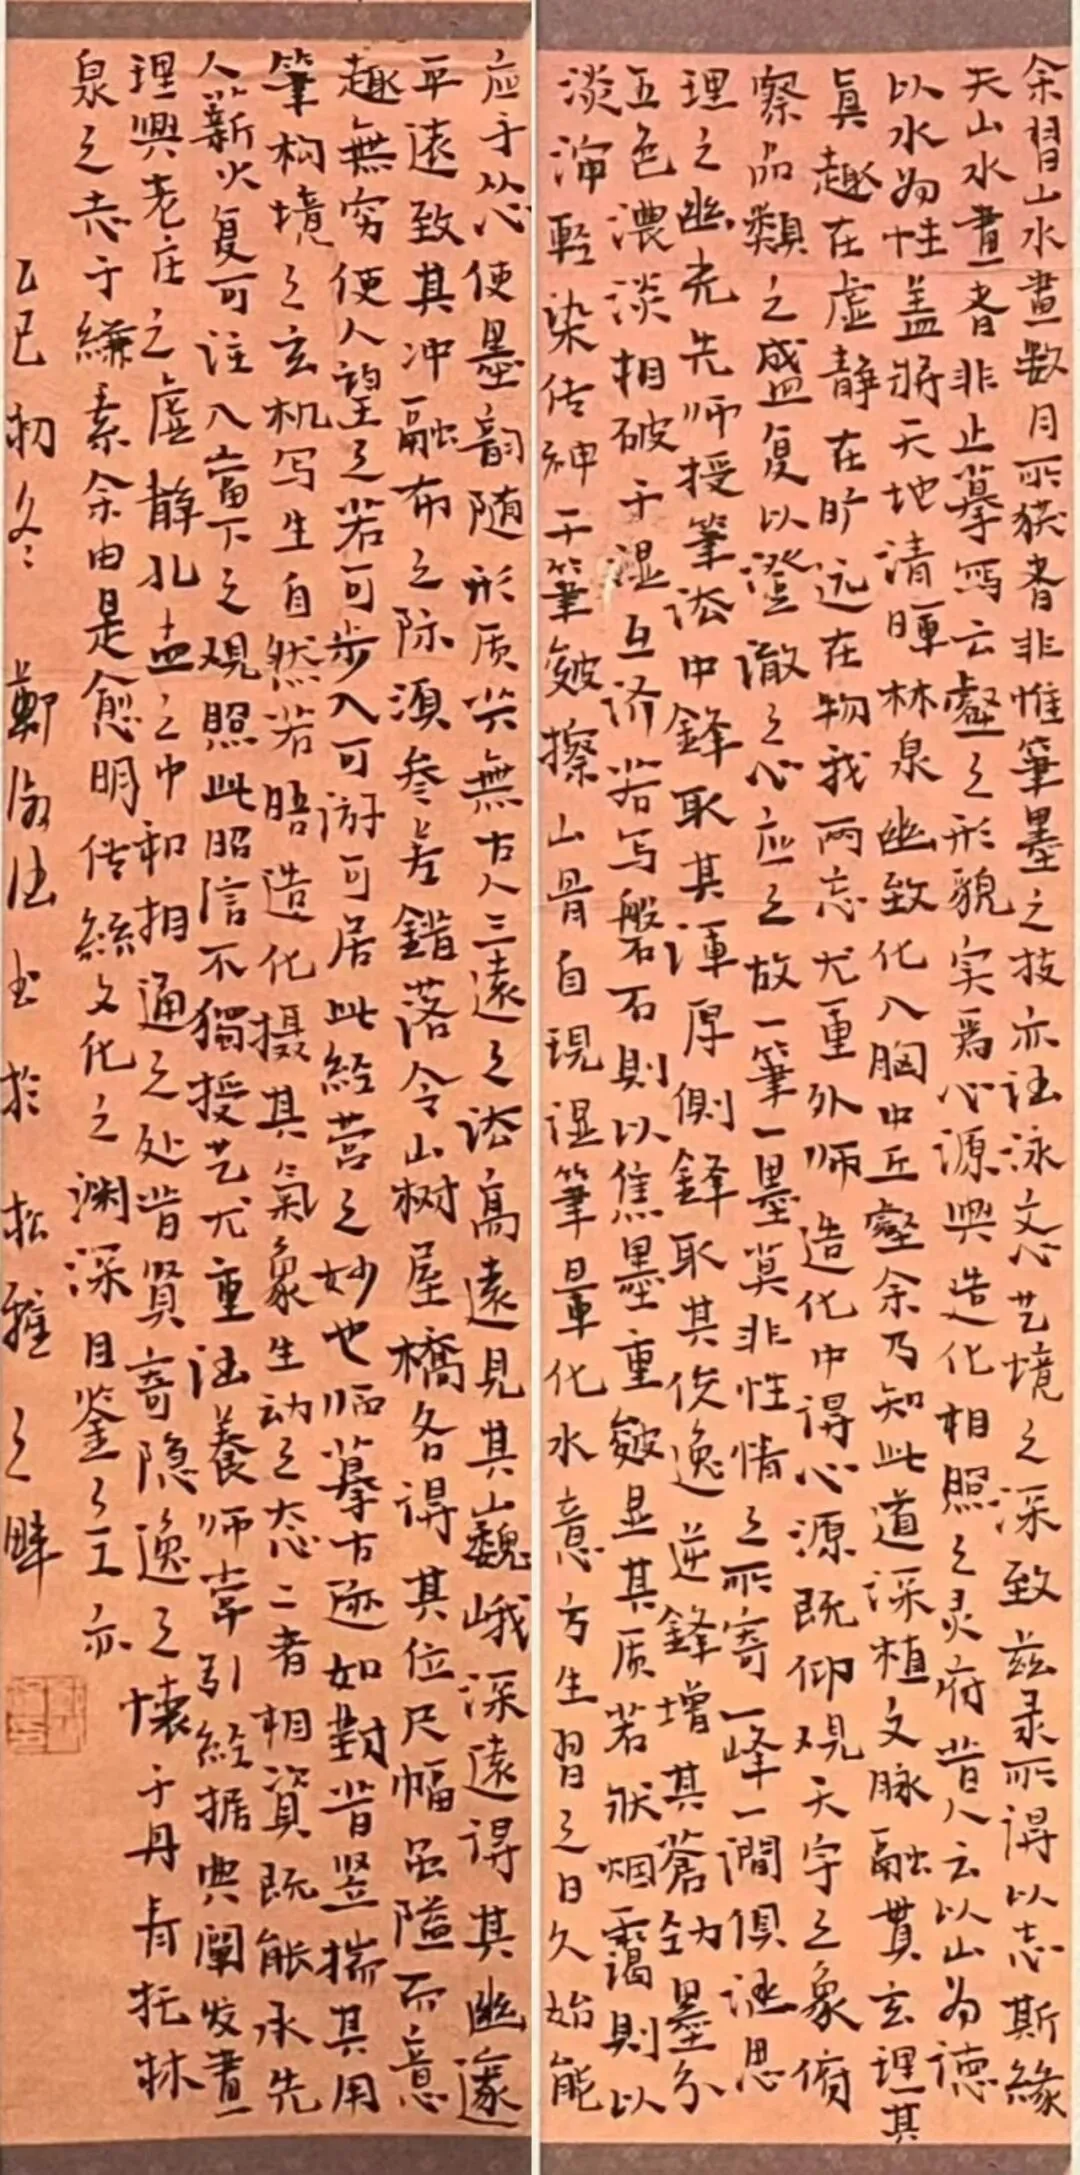 余習山水畫数月所获者非惟筆墨之技亦涵泳文心艺境之深致兹录所得以志斯緣
夫山水畫者非止摹写云壑之形貌实为心源與造化相照之灵府昔人云以山为德
以水为性盖将天地清暉林泉幽致化入胸中丘壑余乃知此道深植文脉融貫玄理其
真趣在虚静在旷远在物我两忘尤重外师造化中得心源既仰观天宇之象俯
察品類之盛复以澄澈之心应之故一筆一墨莫非性情之所寄一峰一澗俱涵思
理之幽光先师授筆法中鋒取其渾厚側鋒取其俊逸逆鋒增其蒼劲墨分
五色濃淡相破干湿互济若写磐石則以焦墨重皴显其质若状烟靄則以
淡渖輕染传神干筆皴擦山骨自現湿筆暈化水意方生習之日久始能
应于心使墨韵随形质尖無古人三遠之法高遠見其山巍峨深遠得其幽邃
平遠致其冲融布之际须参差錯落令山树屋橋各得其位尺幅虽隘而意
趣無穷使人望之若可步入可游可居此経营之妙也临摹古迹如對昔竖揣其用
筆构境之玄机写生自然若晤造化摄其氣象生动之态二者相資既能承先
人薪火复可注入當下之观照此昭信不獨授艺尤重涵養师常引経据典闡发畫
理與老庄之虚静孔孟之中和相通之处昔賢寄隐逸之懐于丹青托林
泉之志于縑素余由是愈明传統文化之渊深目鉴之工亦
乙巳初冬 鄭 书於松雅之畔